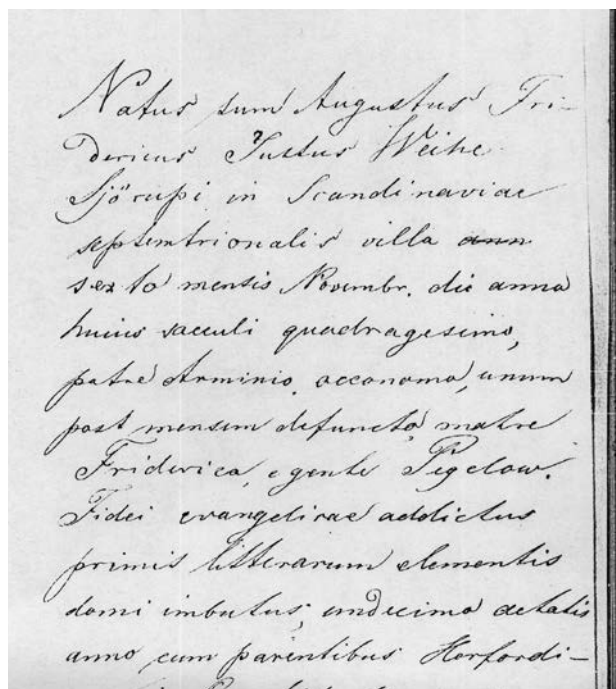 Natus sum Augustus Fri-
dericus Justus Weihe
Sjörupi in Scandinaviae
septemtrionalis villa ann
sexto mensis Novembr. die anno
huius saeculi quadragesimo,
patre Arminio, oeconomo, unum
post mensem defuncto, matre
Friderica, e gente Pegelow.
Fidei evangelicae addictus
primis litterarum elementis
domi imbutus, undecimo aetatis
anno cum parentibus Herfordi-